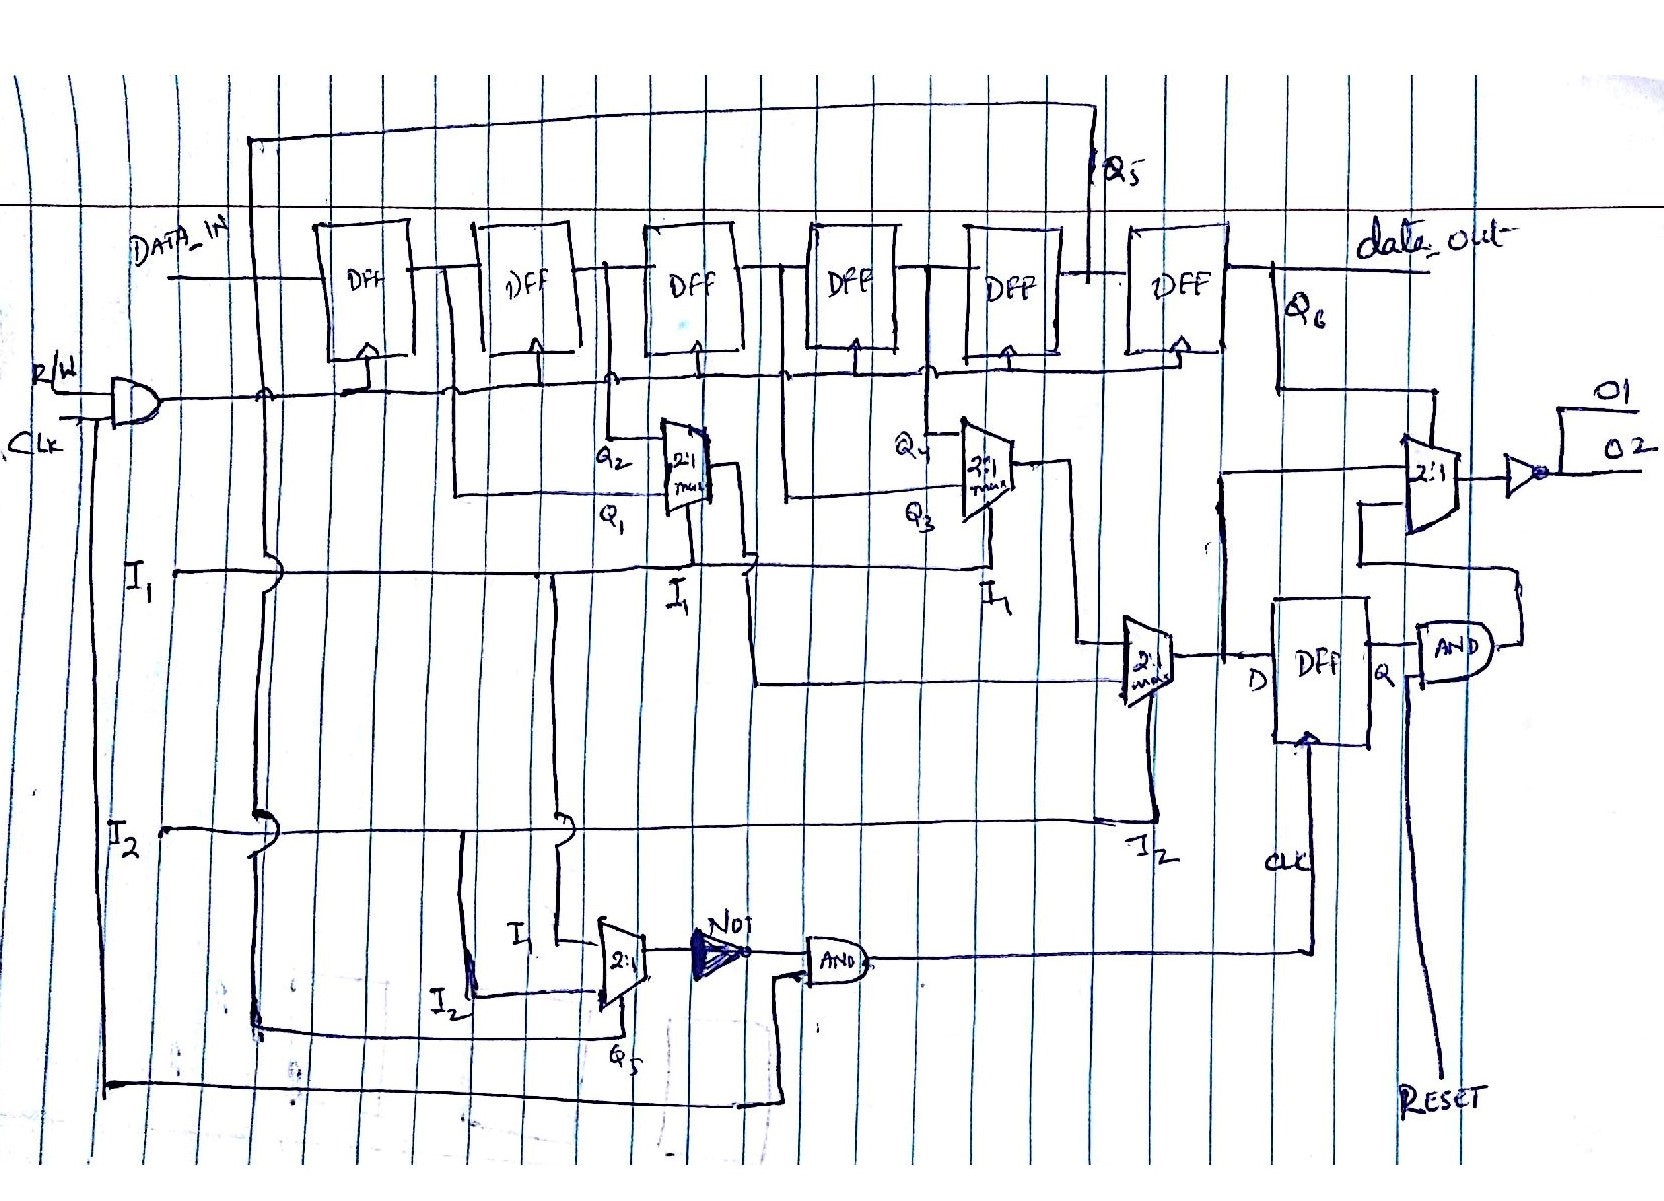 Q5
DATA_IN
DFF
DFF
DFF
DFF
DFF
DFF
data_out
Q6
R/W
CLK
Q2
2:1
mux
Q1
Q4
2:1
mux
Q3
2:1
O1
O2
I1
I1
I1
2:1
mux
D
DFF
Q
AND
I2
I2
CLK
I1
2:1
NOT
AND
I2
Q5
RESET